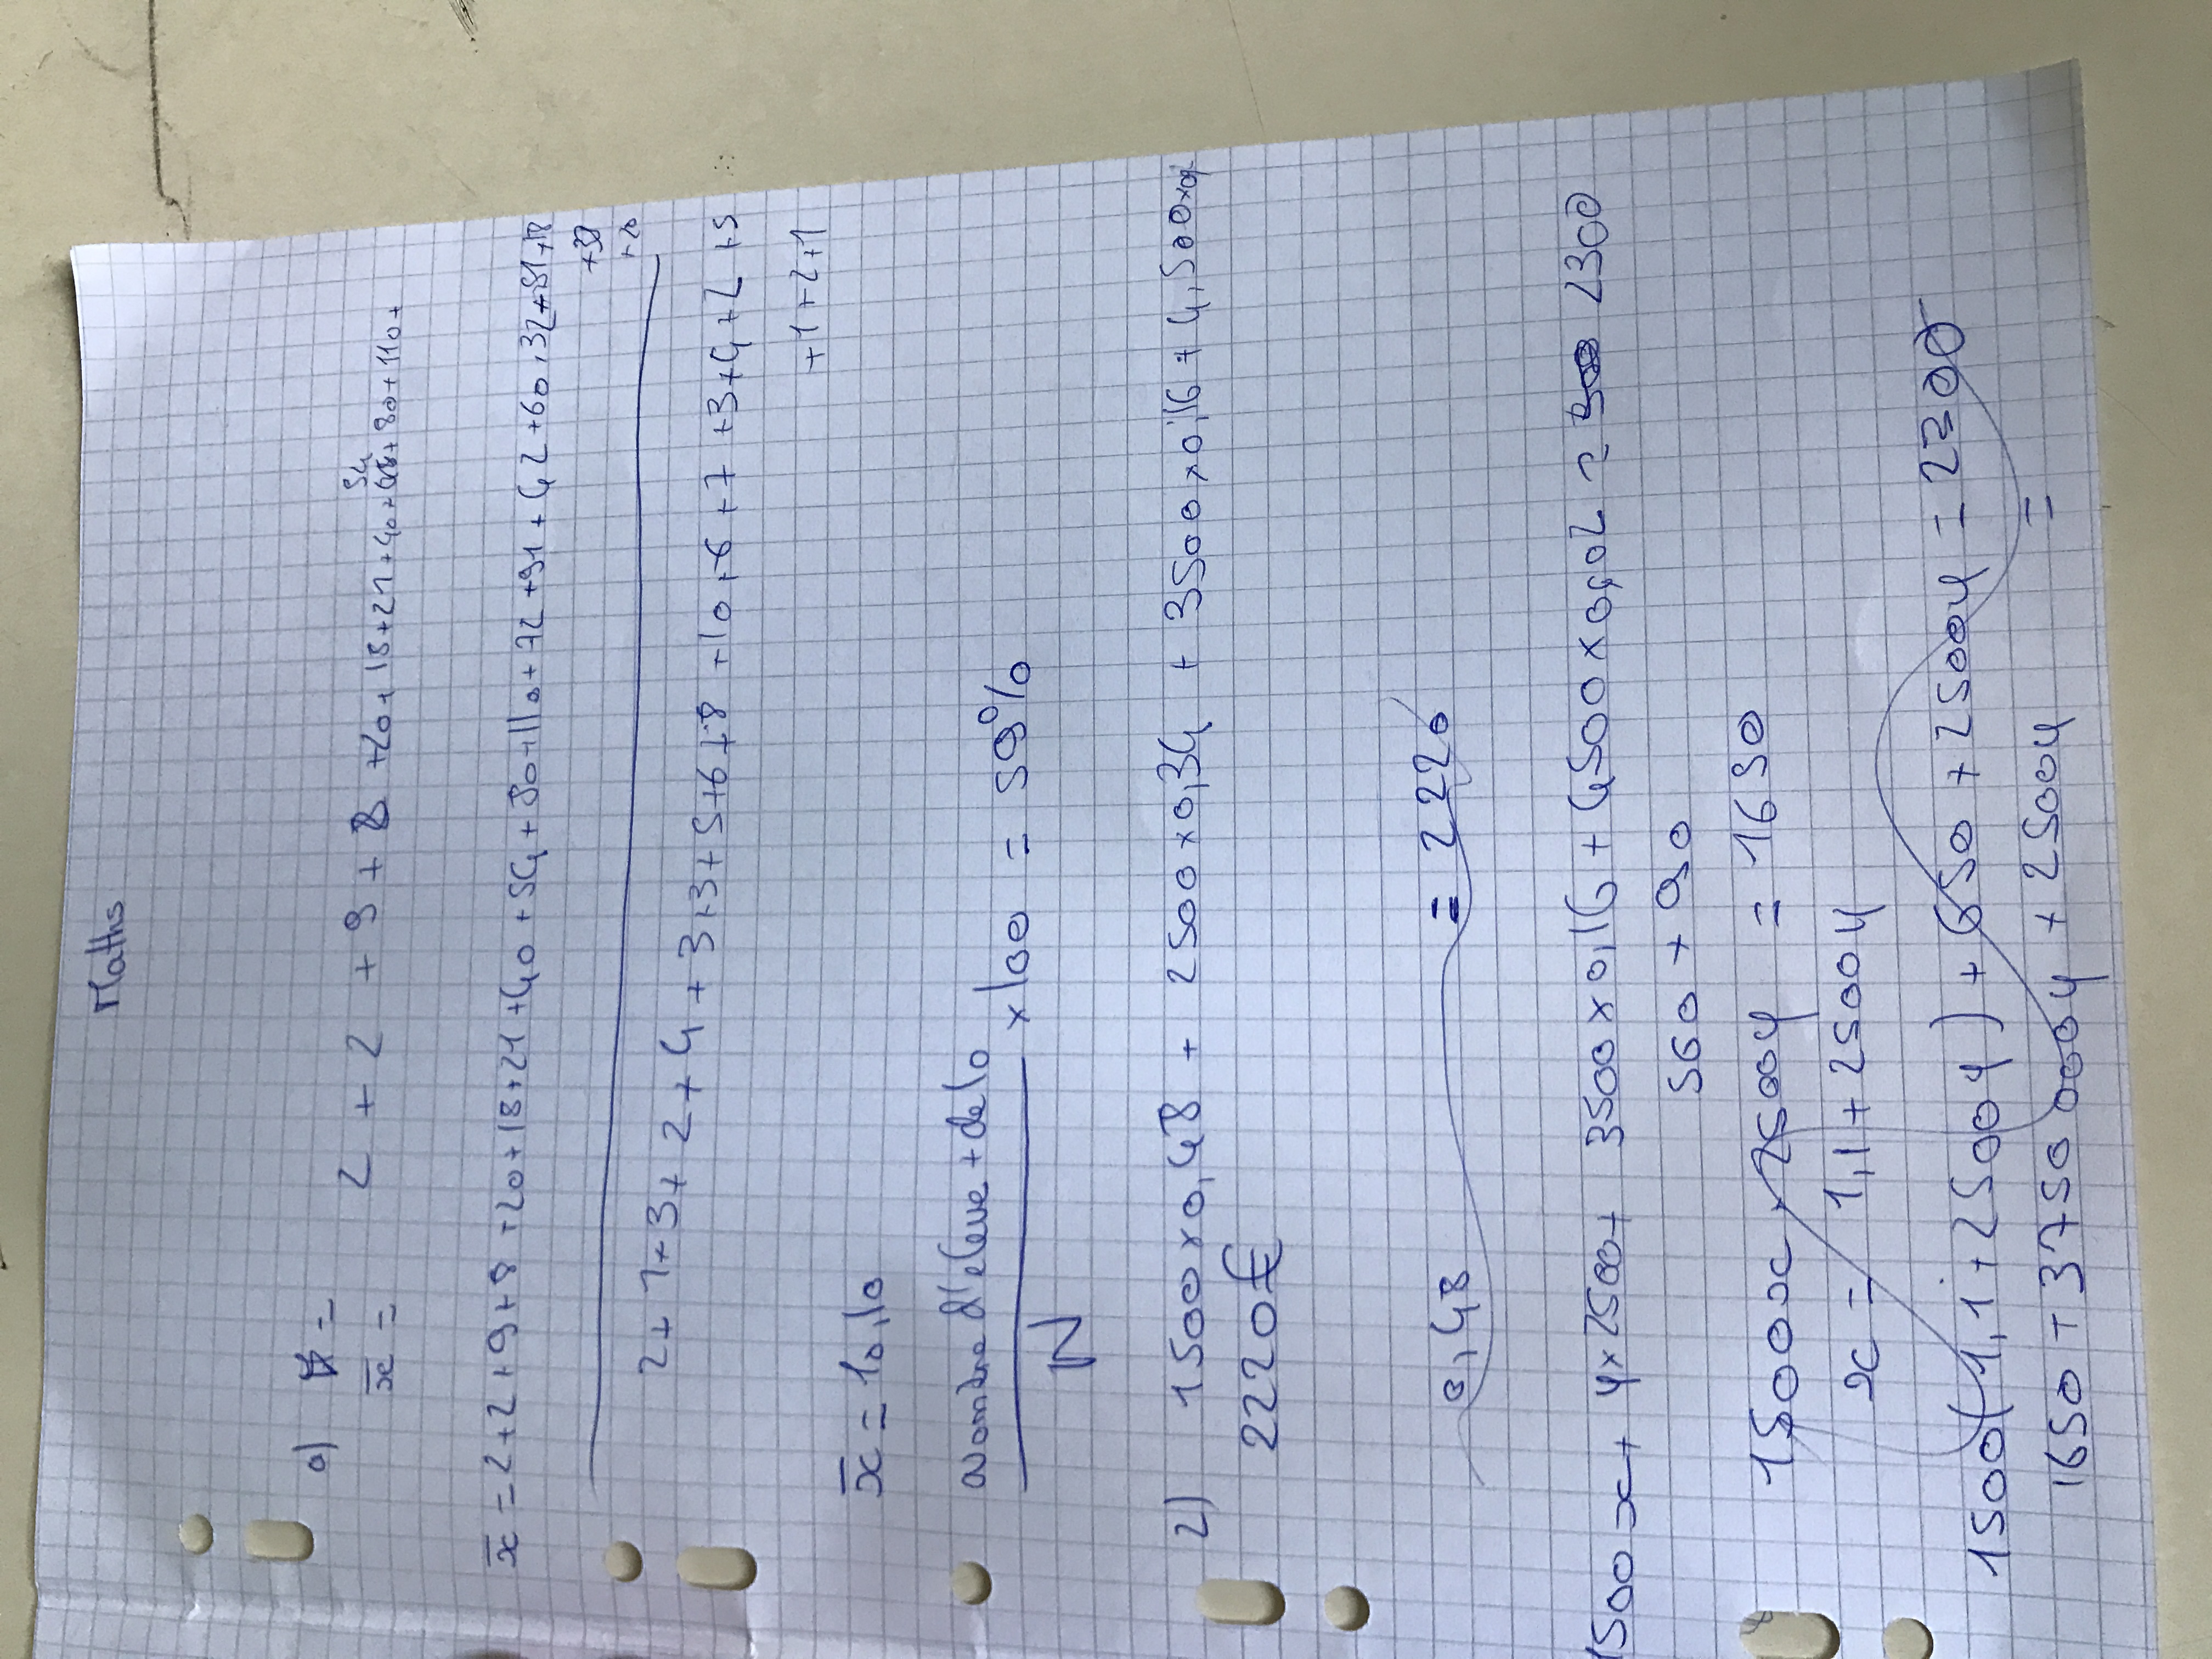 Maths
a) V =
x̄ = 2 + 2 + 9 + 8 +20+ 18+21+40+54+80+110+
x̄ = 2+2+9+8+20+18+21+40+54+80+110+72+91+42+60+32+51+18
+38
+20
2+1+3+2+4+3+3+5+6+8+10+6+7+3+4+2+5
+1+2+1
x̄ = 10,10
Nombre d'eleve + de 10
× 100 = 59%
N
2) 1500×0,48 + 2500×0,34 + 3500×0,16 + 4,500×0,
2220€
0,48 = 2220
1500x+ y×2500+ 3500×0,16 + 4500×0,02 = 2300
560 + 90
1500x + 2500y = 1650
x = 1,1+2500y
1500(1,1+2500y) + 650 + 2500y = 2300
1650 + 3750 000y + 2500y =